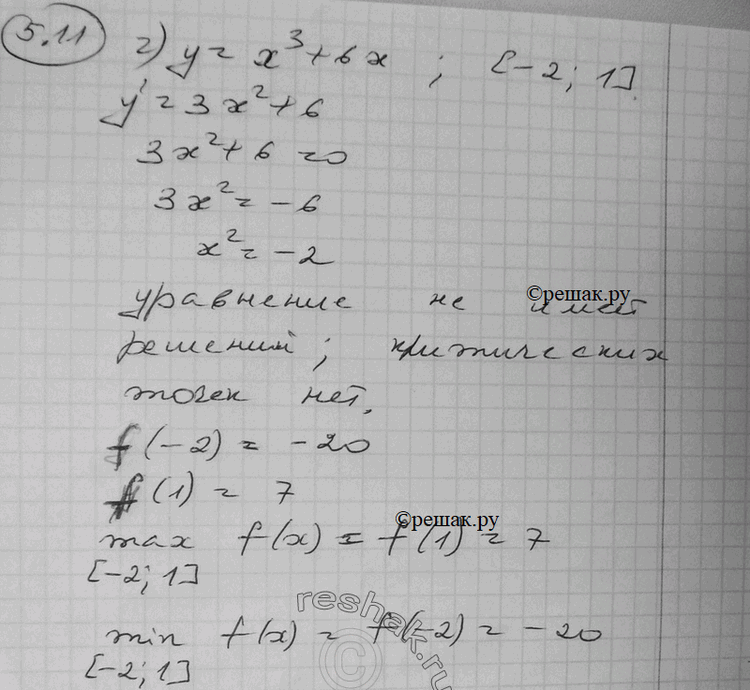 5.11 г) y = x³ + 6x ; [-2; 1].
y' = 3x² + 6
3x² + 6 = 0
3x² = -6
x² = -2
уравнение не имеет
©решак.ру
решений; критических
точек нет.
f(-2) = -20
f(1) = 7
©решак.ру
max f(x) = f(1) = 7
[-2; 1]
reshak.ru
©
min f(x) = f(-2) = -20
[-2; 1]